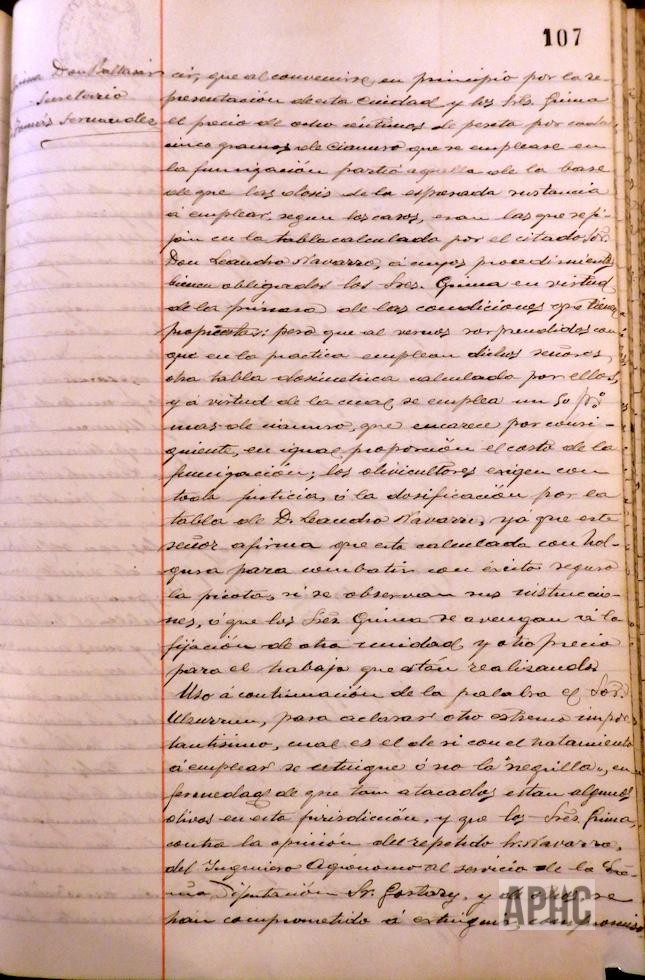 107
Don Baltasar
Secretario
Tomás Fernandez
cir, que al convenirse, en principio por la re-
presentación de esta Ciudad y los Sres. Grima
el precio de ocho céntimos de peseta por cada
cinco gramos de cianuro que se emplease en
la fumigación partió aquella de la base
de que las dosis de la expresada sustancia
á emplear, segun los casos, eran las que se fi-
jan en la tabla calculada por el citado Sor.
Don Leandro Navarro, á cuyos procedimientos
vienen obligados los Sres. Grima en virtud
de la primera de las condiciones que tienen
propuestas: pero que al vernos sorprendidos con
que en la practica emplean dichos señores
otra tabla dosimetrica calculada por ellos,
y á virtud de la cual se emplea un 50 p%
mas de cianuro, que encarece por consi-
guiente, en igual proporción el costo de la
fumigación; los olivicultores exigen con
toda justicia, ó la dosificación por la
tabla de D. Leandro Navarro, ya que este
señor afirma que está calculada con hol-
gura para combatir con éxito seguro
la picota, si se observan sus instruccio-
nes, ó que los Sres. Grima se avengan á la
fijación de otra unidad y otro precio
para el trabajo que están realizando.
Uso á continuación de la palabra el Sor.
para aclarar otro extremo impor-
tantisimo, cual es el de si con el tratamiento
á emplear se extingue ó no la "negrilla", en-
fermedad de que tam atacados estan algunos
olivos en esta jurisdicción, y que los Sres. Grima,
contra la opinión del repetido Sr. Navarro,
del Ingeniero Agrónomo al servicio de la
Diputación Sr. y
han comprometido á extinguir, compromiso
APHC